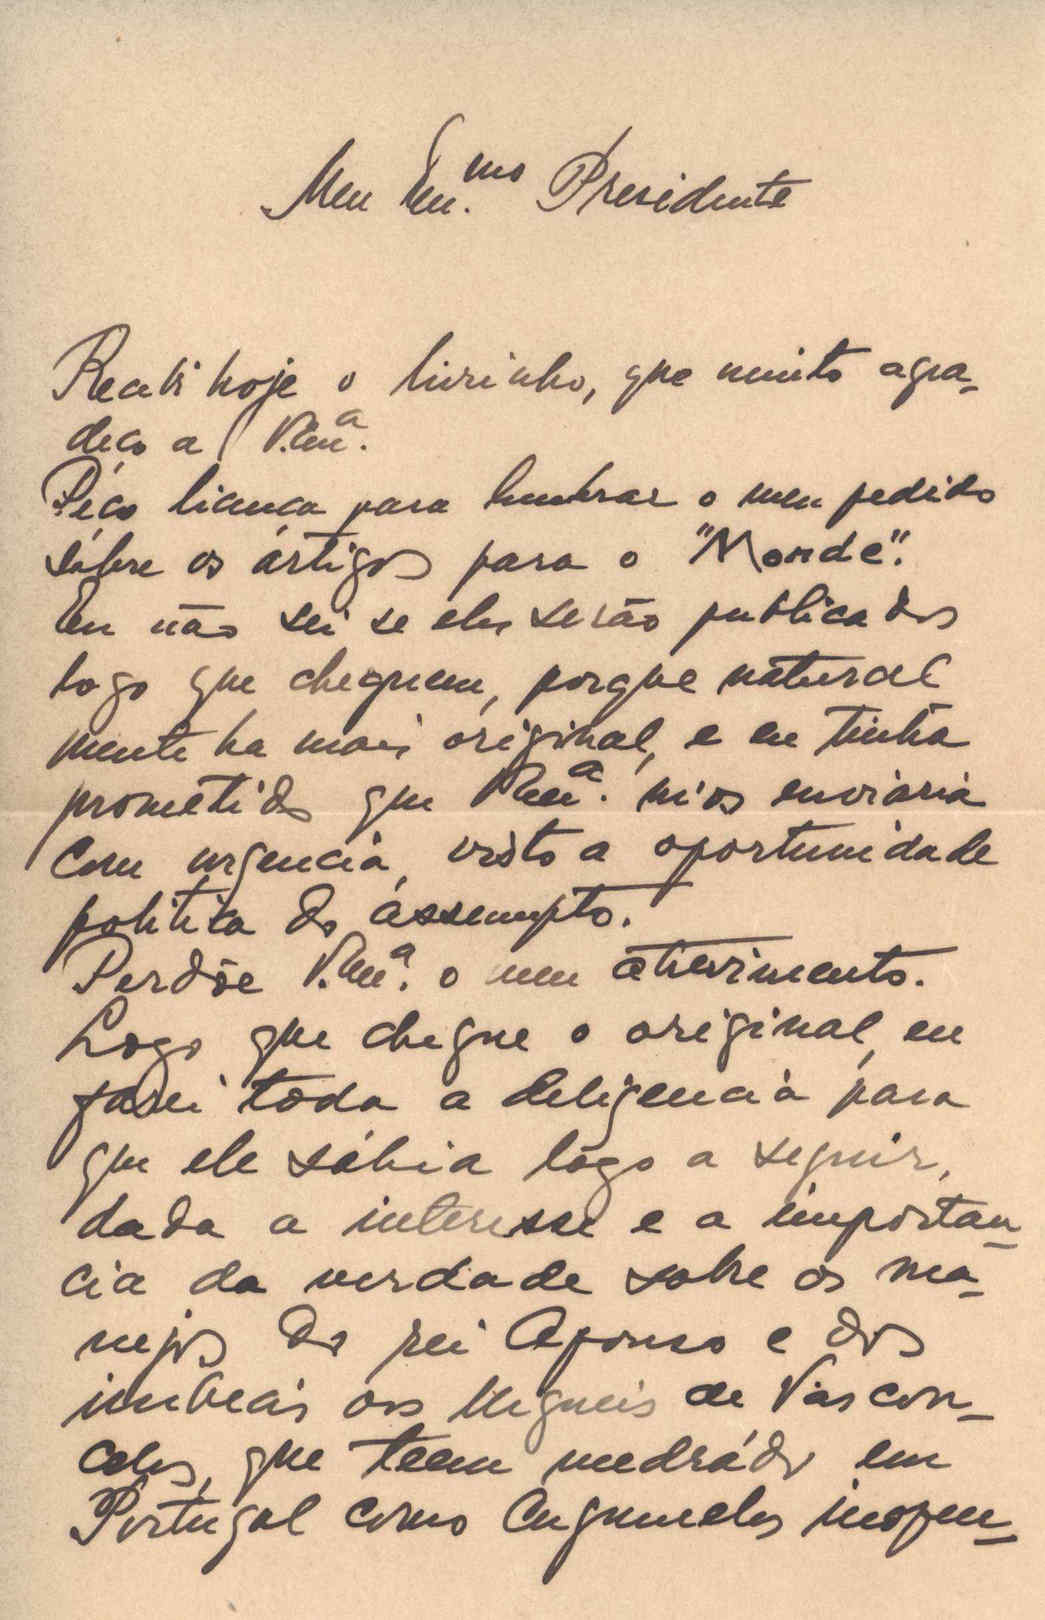 Meu Em.mo Presidente
Recebi hoje o livrinho, que muito agra-
deço a V. Em.ª
Péço licença para lembrar o meu pedido
sôbre os ártigos para o "Monde".
Eu não sei se eles serão publicados
logo que cheguem, porque natural
mente ha mais original, e eu tinha
prometido que V. Em.ª m'os enviaria
com urgencia, visto a oportunidade
politica do assempto.
Perdõe V. Em.ª o meu atrevimento.
Logo que chegue o original, eu
farei toda a deligencia para
que ele sáhia lôgo a seguir,
dada a interesse e a importan-
cia da verdade sobre os ma-
nejos do rei Afonso e dos
imbecis os Migueis de Vascon-
celos, que teem medrádo em
Portugal como cugumelos inofen-